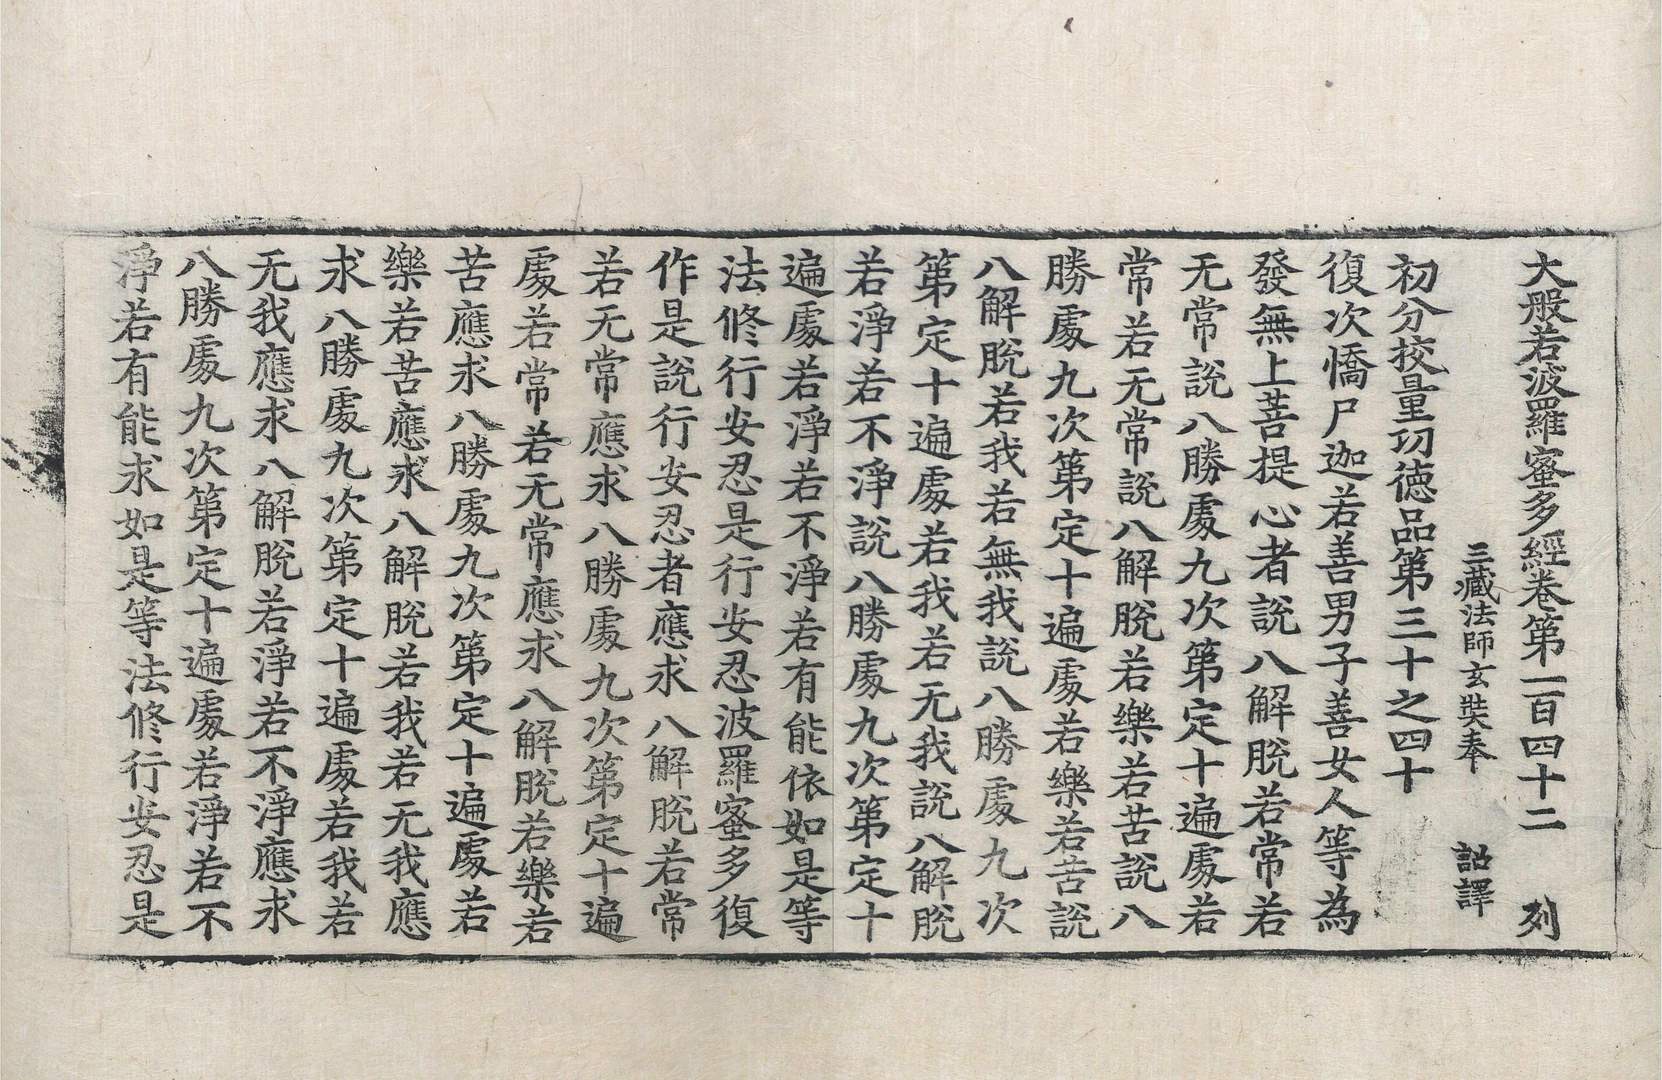 大般若波羅蜜多經卷第一百四十二 列
三藏法師玄奘奉 詔譯
初分挍量功德品第三十之四十
復次憍尸迦若善男子善女人等為
發無上菩提心者說八解脫若常若
无常說八勝處九次第定十遍處若
常若无常說八解脫若樂若苦說八
勝處九次第定十遍處若樂若苦說
八解脫若我若無我說八勝處九次
第定十遍處若我若无我說八解脫
若淨若不淨說八勝處九次第定十
遍處若淨若不淨若有能依如是等
法修行安忍是行安忍波羅蜜多復
作是說行安忍者應求八解脫若常
若无常應求八勝處九次第定十遍
處若常若无常應求八解脫若樂若
苦應求八勝處九次第定十遍處若
樂若苦應求八解脫若我若无我應
求八勝處九次第定十遍處若我若
无我應求八解脫若淨若不淨應求
八勝處九次第定十遍處若淨若不
淨若有能求如是等法修行安忍是